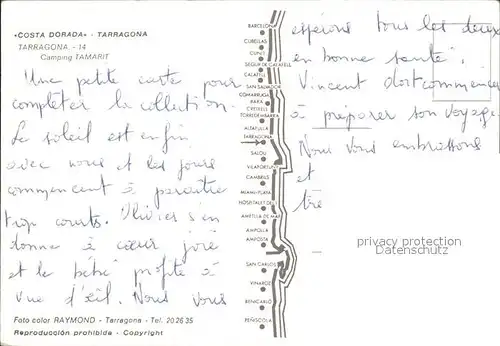 «COSTA DORADA» - TARRAGONA
TARRAGONA - 14
Camping TAMARIT
Une petite carte pour
compléter la collection.
Le soleil est enfin
avec nous et les jours
commencent à paraître
trop courts. Olivier s'en
donne à cœur joie
et le bébé profite à
vue d'œil. Nous vous
Foto color RAYMOND - Tarragona - Tel. 20 26 35
Reproducción prohibida - Copyright
BARCELONA
CUBELLAS
CUNIT
SEGUR DE CALAFELL
CALAFELL
SAN SALVADOR
COMARRUGA
BARA
CREIXELL
TORREDEMBARRA
ALTAFULLA
TARRAGONA
SALOU
VILAFORTUNY
CAMBRILS
MIAMI-PLAYA
HOSPITALET DEL
AMETLLA DE MAR
AMPOLLA
AMPOSTA
SAN CARLOS
VINAROZ
BENICARLO
PEÑISCOLA
espérons tous les deux
en bonne santé.
Vincent doit commencer
à préparer son voyage.
Nous vous embrassons
et
très
privacy protection
Datenschutz